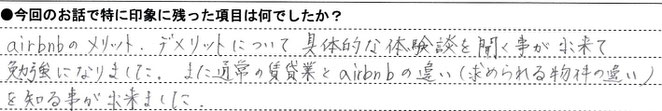 ●今回のお話で特に印象に残った項目は何でしたか？
airbnbのメリット、デメリットについて具体的な体験談を聞く事が出来て
勉強になりました。また通常の賃貸業とairbnbの違い(求められる物件の違い)
を知る事が出来ました。